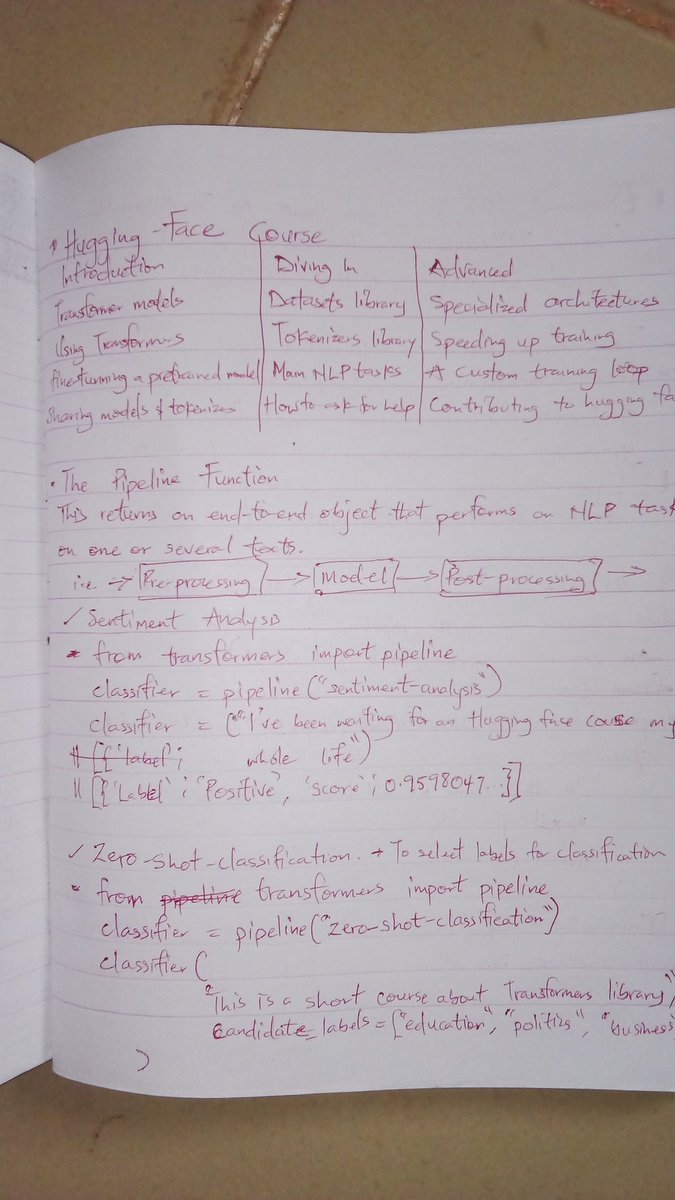 Hugging-Face Course
Introduction | Diving In | Advanced
Transformer models | Datasets library | Specialized architectures
Using Transformers | Tokenizers library | Speeding up training
finetunning a pretrained model | Main NLP tasks | A custom training loop
Sharing models & tokenizes | How to ask for help | Contributing to hugging fa
• The Pipeline Function
This returns on end-to-end object that performs on NLP task
on one or several texts.
i.e → Pre-processing → Model → Post-processing →
✓ Sentiment Analysis
* from transformers import pipeline
classifier = pipeline("sentiment-analysis")
classifier = ("I've been waiting for an Hugging face couse my
[{'label'; whole life")
[{'Label' : 'Positive', 'score'; 0.9598047...}]
✓ Zero-shot-classification. → To select labels for classification
* from pipeline transformers import pipeline
classifier = pipeline("zero-shot-classification")
classifier (
"This is a short course about Transformers library",
candidate_labels = ["education", "politics", "business
)